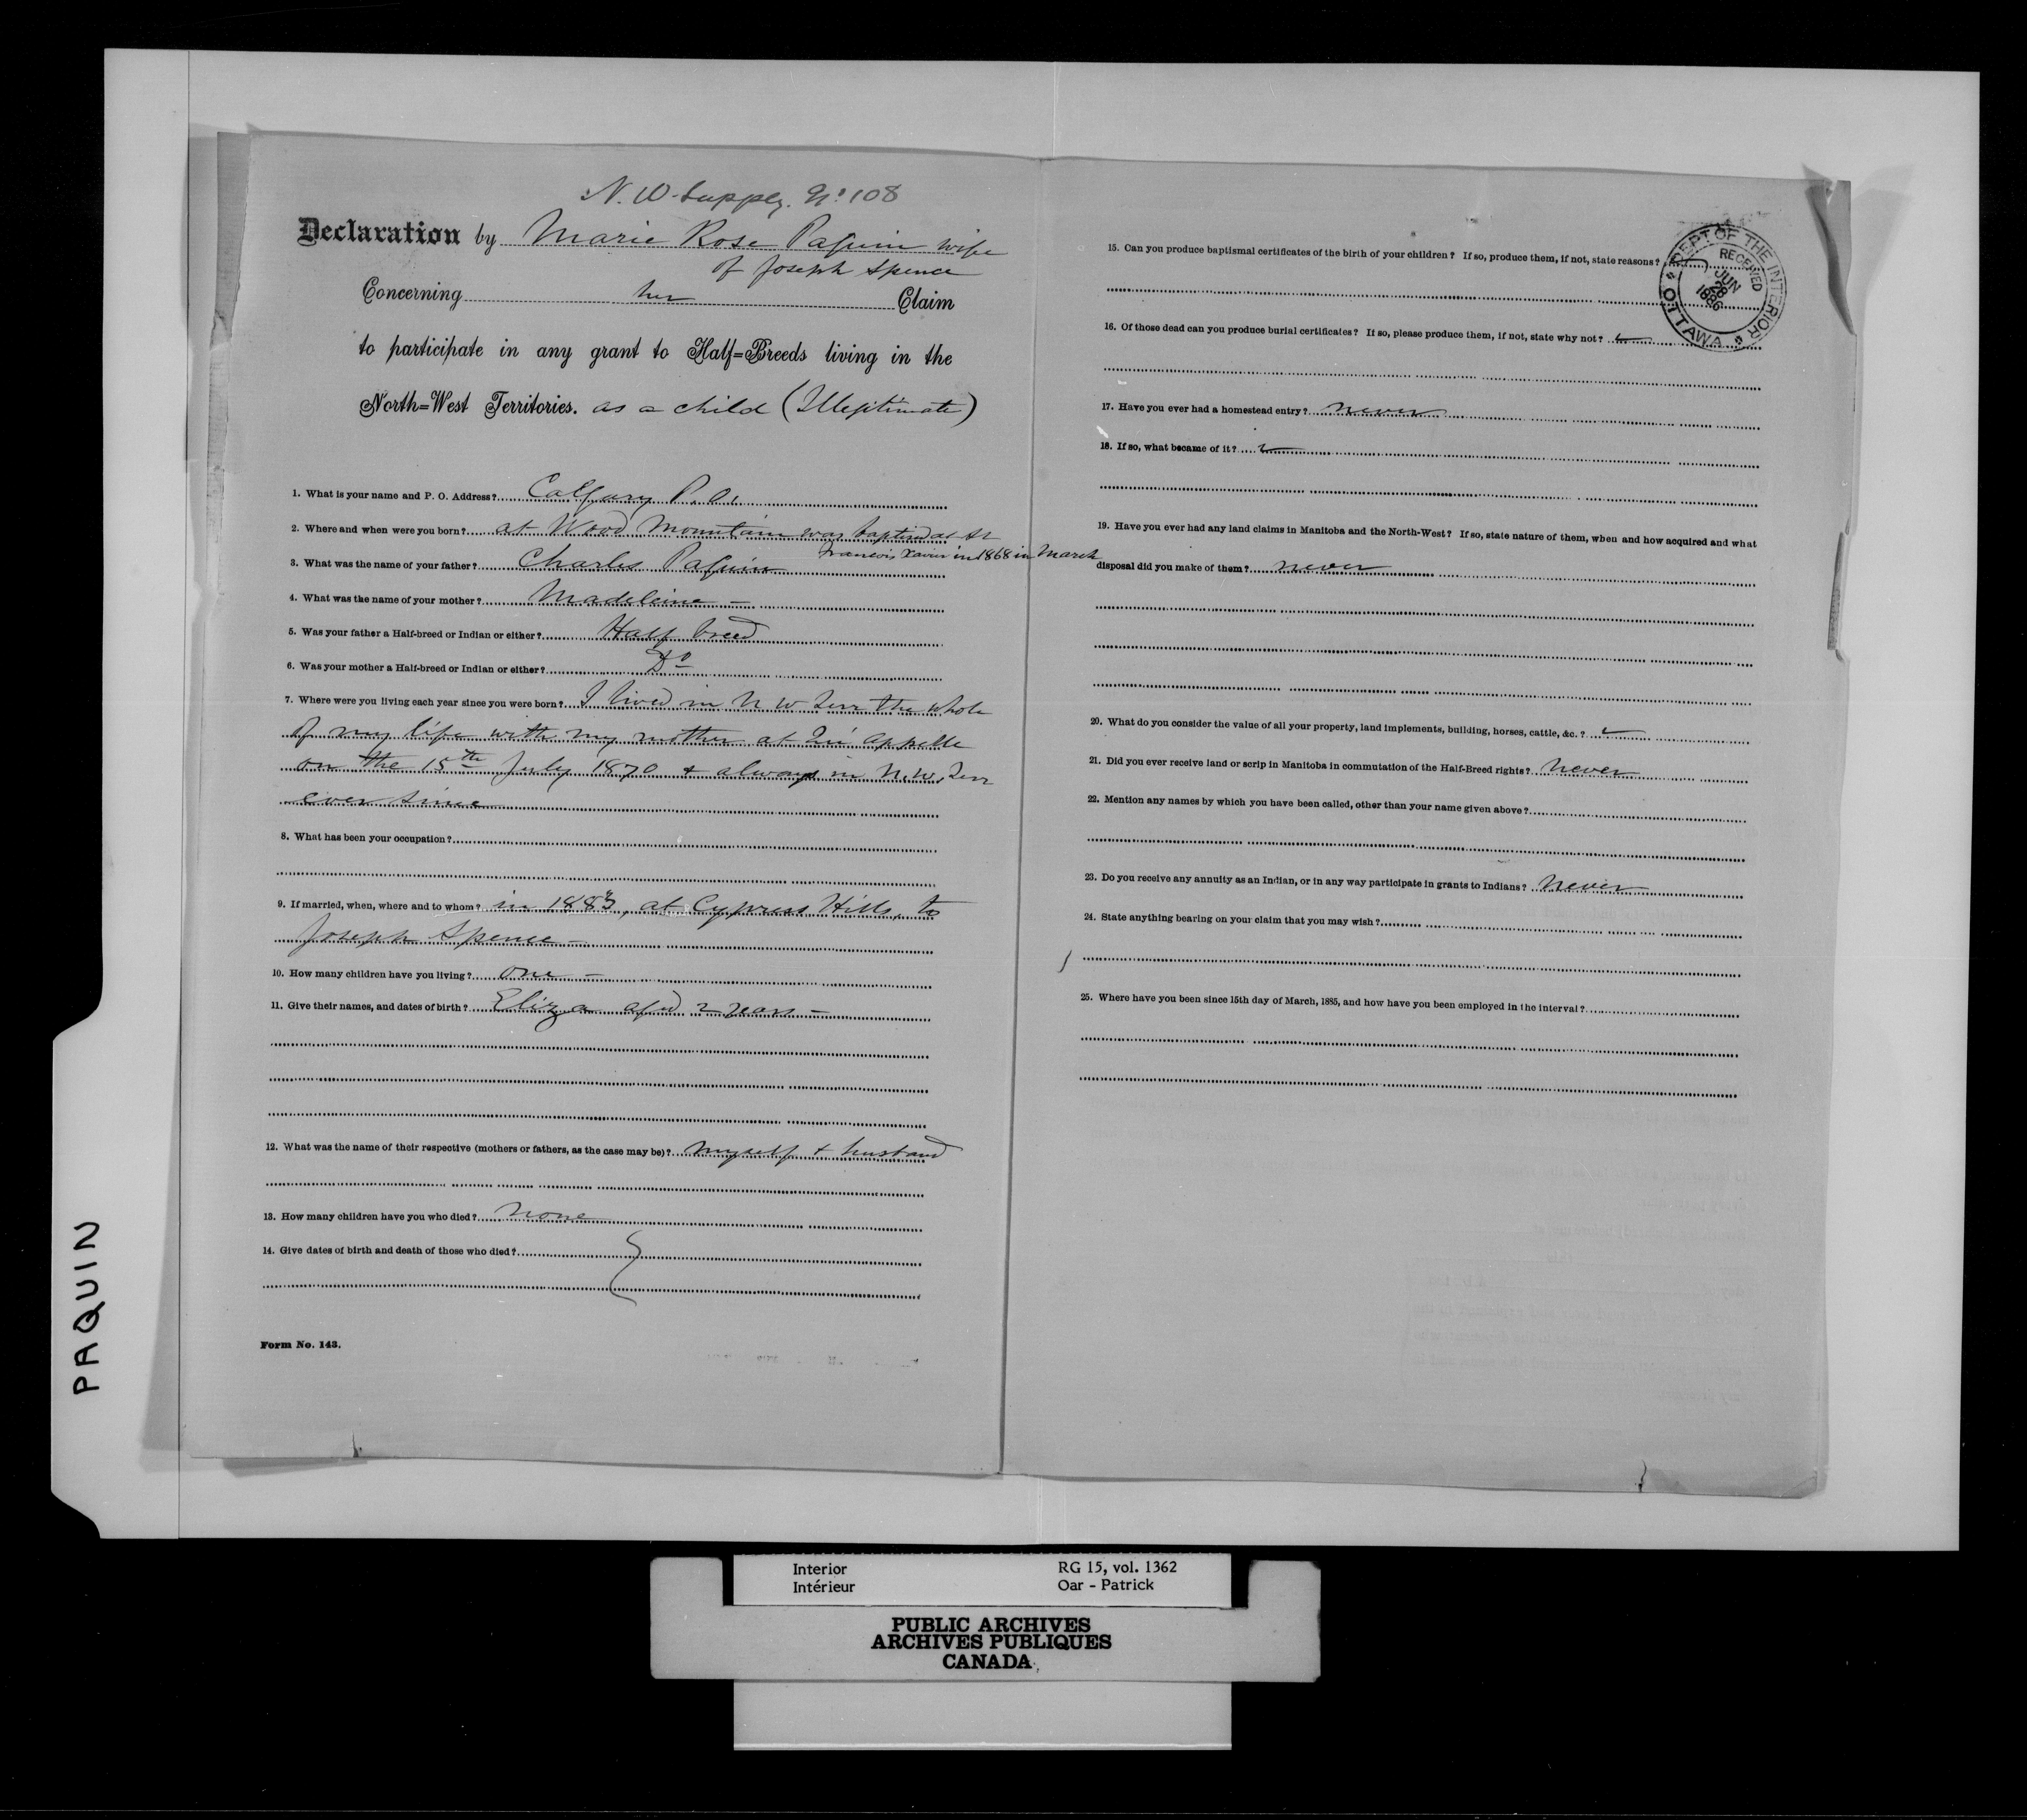 N. W. Supply. No. 108
Declaration by Marie Rose Paquin wife
of Joseph Spence
Concerning her Claim
to participate in any grant to Half=Breeds living in the
North=West Territories. as a child (Illegitimate)
1. What is your name and P. O. Address? Calgary P.O.
2. Where and when were you born? at Wood Mountain was baptised at St
Francois Xavier in 1868 in March
3. What was the name of your father? Charles Paquin
4. What was the name of your mother? Madeleine —
5. Was your father a Half-breed or Indian or either? Half breed
6. Was your mother a Half-breed or Indian or either? Do
7. Where were you living each year since you were born? I lived in N W Terr the whole
of my life with my mother at Qu'appelle
on the 15th July 1870 & always in N.W. Terr
ever since
8. What has been your occupation?
9. If married, when, where and to whom? in 1883, at Cypress Hills, to
Joseph Spence —
10. How many children have you living? one —
11. Give their names, and dates of birth? Eliza aged 2 years —
12. What was the name of their respective (mothers or fathers, as the case may be)? myself & husband
13. How many children have you who died? None
14. Give dates of birth and death of those who died?
Form No. 143.
15. Can you produce baptismal certificates of the birth of your children? If so, produce them, if not, state reasons?
DEPT OF THE INTERIOR
RECEIVED
JUN
28
1886
OTTAWA
16. Of those dead can you produce burial certificates? If so, please produce them, if not, state why not?
17. Have you ever had a homestead entry? never
18. If so, what became of it?
19. Have you ever had any land claims in Manitoba and the North-West? If so, state nature of them, when and how acquired and what
disposal did you make of them? never
20. What do you consider the value of all your property, land implements, building, horses, cattle, &c.?
21. Did you ever receive land or scrip in Manitoba in commutation of the Half-Breed rights? Never
22. Mention any names by which you have been called, other than your name given above?
23. Do you receive any annuity as an Indian, or in any way participate in grants to Indians? Never
24. State anything bearing on your claim that you may wish?
25. Where have you been since 15th day of March, 1885, and how have you been employed in the interval?
PAQUIN
Interior RG 15, vol. 1362
Intérieur Oar - Patrick
PUBLIC ARCHIVES
ARCHIVES PUBLIQUES
CANADA